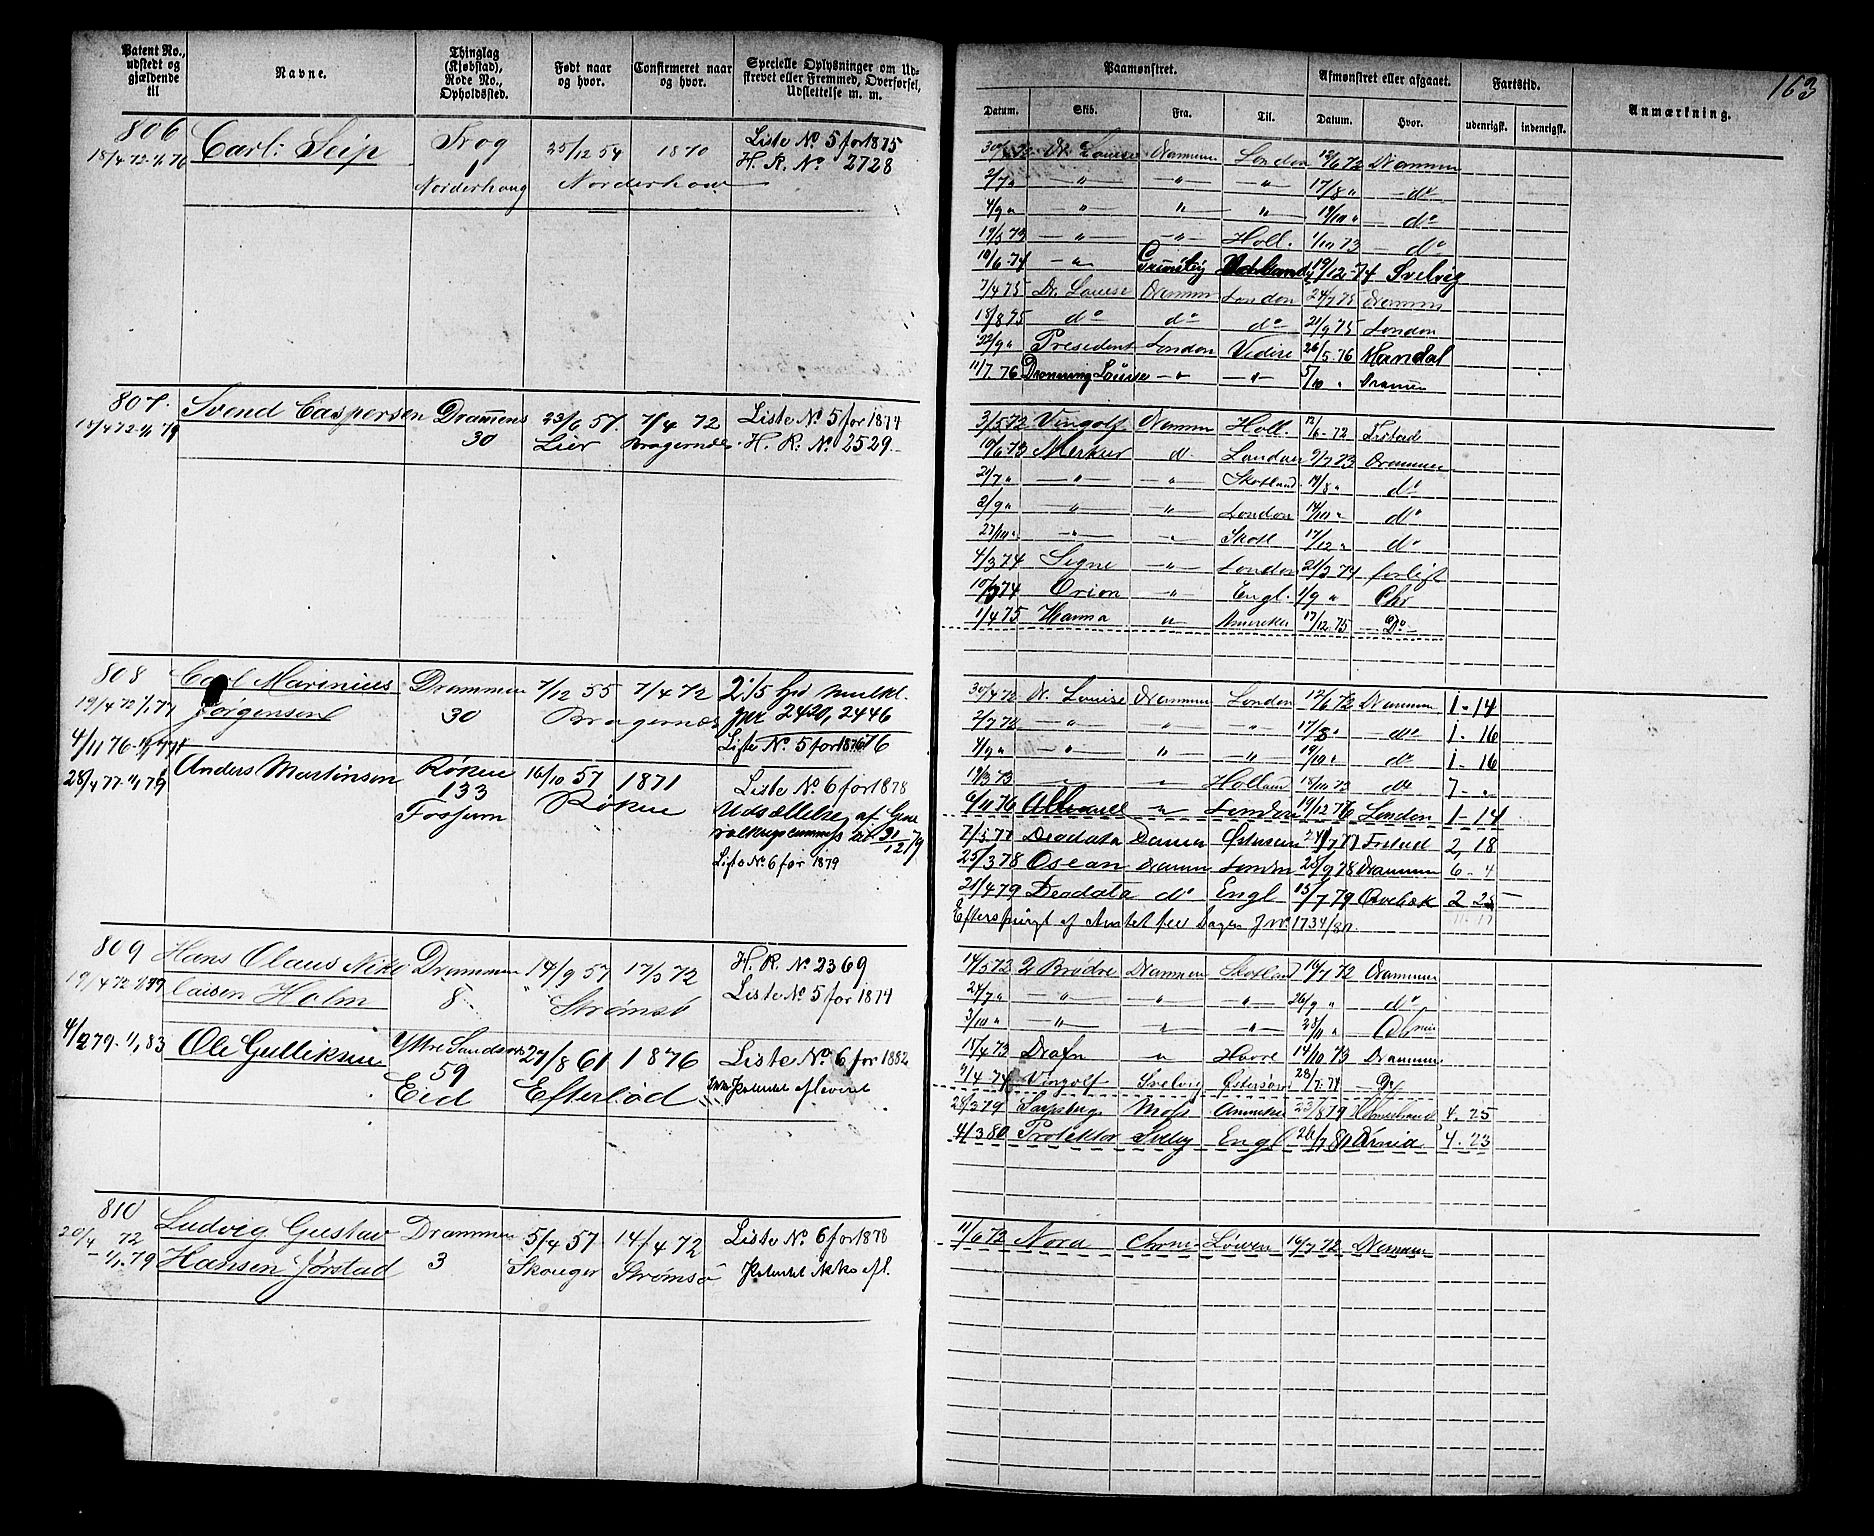 163
Patent No., udstedt og gjældende til
Navne.
Thinglag (Kjøbstad), Rode No., Opholdssted.
Født naar og hvor.
Confirmeret naar og hvor.
Specielle Oplysninger om Udskrevet eller Fremmed, Overførsel, Udslettelse m. m.
Paamønstret.
Afmønstret eller afgaaet.
Fartstid.
Anmærkning.
Datum. Skib. Fra. Til. Datum. Hvor. udenrigsk. indenrigsk.
806 Carl: Seip Trog 25/12 54 1870 Liste No 5 for 1875
18/4 72 - 1/1 76 1 H. R. No 2728
Norderhoug Norderhow
Dr. Louise Drammen London 12/6 72 Drammen
2/7 " — " — — " — — " — 17/8 " — do
4/9 " — " — " " 19/10 " — do
19/3 73 — " — — " — Holl. 1/10 73 — do
10/6 74 — " — Grimsby 19/12 74 Svelvig
7/4 75 Dr. Louise Dramm London 24/7 75 Dramm
18/8 75 do do do 21/9 75 London
22/9 " President London 26/5 76 Mandal
11/7 76 Dronning Louise — " — — " — 5/10 " Dramen
807. Svend Caspersen Dramens 23/6 57. 7/4 72 Liste No 5 for 1877
18/4 72 - 1/1 79 30 Lier Bragernæs. H. R. No 2529.
3/5 72 Vingolf Drammen Holl. 12/6 - 72
10/6 73 Merkur d. London 9/7 73 Drammen
21/7 " — " — — " — Skotland 14/8 " do
2/9 " — " — " London 14/10 " do
27/10 " — " — " Skotl 17/12 " do
4/3 74 Signe — " — London 21/3 74 forligt
Orion — " — Engl. 1/9 " Chr
1/4 75 Hanna " Amerika 17/12 75 — Do —
808 Carl Marinius Drammen 7/12 55 7/4 72 2/5 ful mulkt.
19/4 72 1/1 77 Jørgensen 30 Bragernæs for 2420, 2446
4/11 76 - 1/1 77 Liste No 5 for 1876
28/4 77 - 1/1 79 Anders Martinsen Røken 16/10 57 1871 Liste No 6 for 1878
133 Røken Udsættelse af Gene
Fossum
Liste No 6 for 1879
30/4 72 Dr. Louise Drammen London 12/6 72 Drammen 1 - 14
2/7 72 — " — — " — " 17/8 " — do 1 - 16
4/9 " — " — " " 19/10 " do 1 - 16
19/3 73 " " Holland 18/10 73 do 7 - "
6/11 76 " London 19/12 76 London 1 - 14
7/5 77 Deodata Dramen Østersøen 2, 18
25/3 78 Ocean Dramm London 28/9 78 Drammen 6 - 4
21/4 79 Deodata do Engl 15/7 79 2 25
Efterspurgt af Amtet 1734/80.
809 Hans Olaus Nik Drammen 14/9 57 17/3 72 H. R. No 2369
19/4 72 - 1/1 77 laisen Holm 8 Strømsø Liste No 5 for 1877
4/2 79 - 1/1 83 Ole Gulliksen Yttre Sandsvær 27/8 61 1876 Liste No 6 for 1882
59 Patentet afleveret
Eid Efterlød
14/5 72 2 Brødre Drammen Skotland 16/7 72 Drammen
24/7 " — " — " " 26/9 " do
3/10 " — " — " " 28/11 "
15/4 73 Drafn " Havre 14/10 73 Drammen
9/4 74 Vingolf Svelvig Østersøen — Do
28/3 79 Sarpsborg Moss Amerika 23/8 79 Holmestrand 4. 25
4/3 80 Protektor Svelvig Engl 4. 23
810 Ludvig Gustav Drammen 5/4 57 14/4 72 Liste No 6 for 1878
20/4 72 - 1/1 79 Hansen Jørstad 3 Skouger Strømsø Patentet ikke afl.
11/6 72 Nora 16/7 72 Drammen